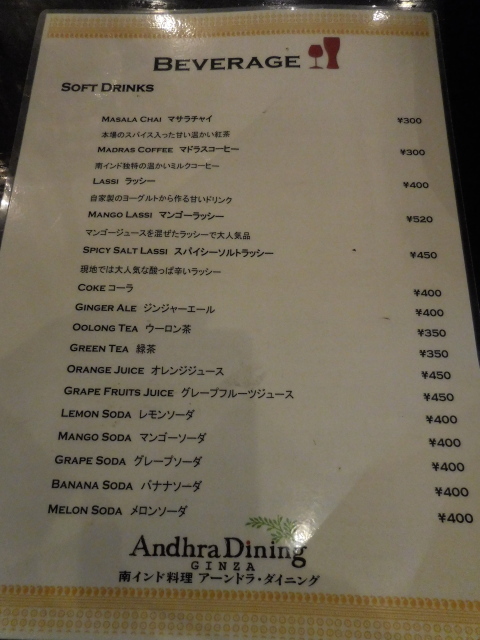 BEVERAGE
SOFT DRINKS
MASALA CHAI マサラチャイ ¥300
本場のスパイス入った甘い温かい紅茶
MADRAS COFFEE マドラスコーヒー ¥300
南インド独特の温かいミルクコーヒー
LASSI ラッシー ¥400
自家製のヨーグルトから作る甘いドリンク
MANGO LASSI マンゴーラッシー ¥520
マンゴージュースを混ぜたラッシーで大人気品
SPICY SALT LASSI スパイシーソルトラッシー ¥450
現地では大人気な酸っぱ辛いラッシー
COKE コーラ ¥400
GINGER ALE ジンジャーエール ¥400
OOLONG TEA ウーロン茶 ¥350
GREEN TEA 緑茶 ¥350
ORANGE JUICE オレンジジュース ¥450
GRAPE FRUITS JUICE グレープフルーツジュース ¥450
LEMON SODA レモンソーダ ¥400
MANGO SODA マンゴーソーダ ¥400
GRAPE SODA グレープソーダ ¥400
BANANA SODA バナナソーダ ¥400
MELON SODA メロンソーダ ¥400
Andhra Dining
GINZA
南インド料理 アーンドラ・ダイニング